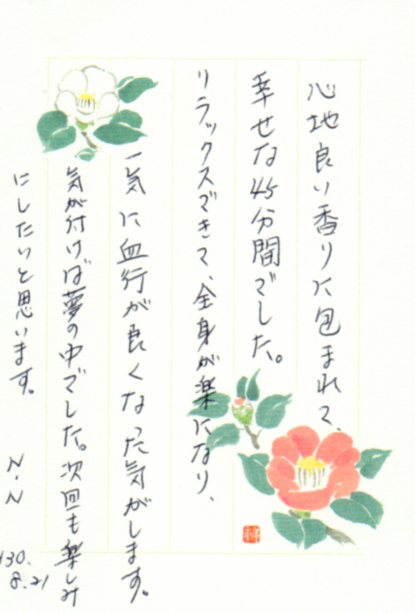 心地良い香りに包まれて、
幸せな45分間でした。
リラックスできて、全身が楽になり、
一気に血行が良くなった気がします。
気が付けば夢の中でした。次回も楽しみ
にしたいと思います。
N.N
H30.
8.21